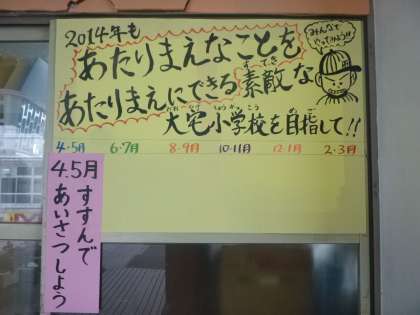 2014年も
あたりまえなことを
あたりまえにできる素敵な
大宅小学校を目指して!!
みんなで
やってみよう!!
4・5月 6・7月 8・9月 10・11月 12・1月 2・3月
4.5月 すすんで
あいさつしよう